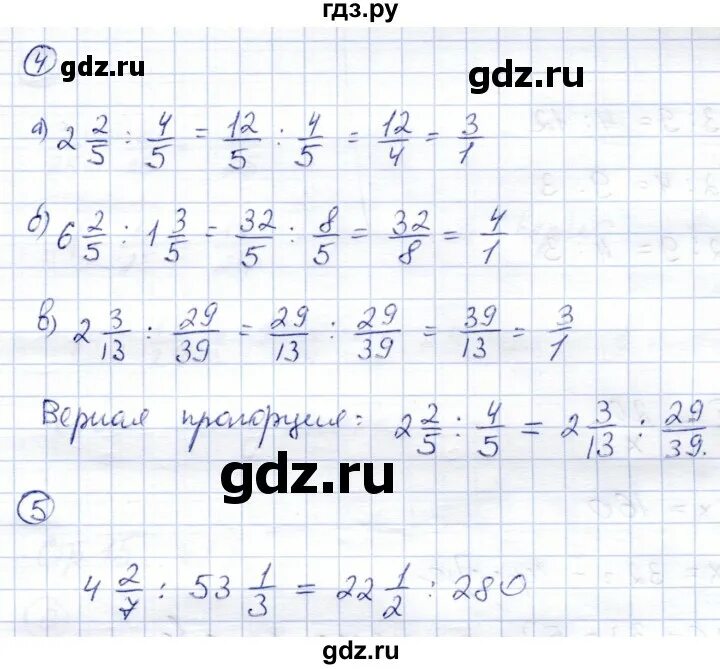 гдз.ру
④
gdz.ru gdz.ru
а) 2 2/5 : 4/5 = 12/5 : 4/5 = 12/4 = 3/1
б) 6 2/5 : 1 3/5 = 32/5 : 8/5 = 32/8 = 4/1
в) 2 3/13 : 29/39 = 29/13 : 29/39 = 39/13 = 3/1
Верная пропорция: 2 2/5 : 4/5 = 2 3/13 : 29/39.
gdz.ru
⑤
4 2/7 : 53 1/3 = 22 1/2 : 280
gdz.ru